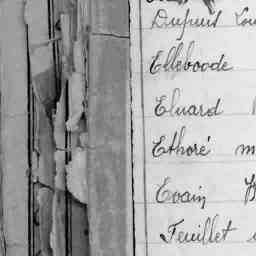 Dupuis Lou
Elleboode
Eluard
Ethoré m
Evain
Feuillet